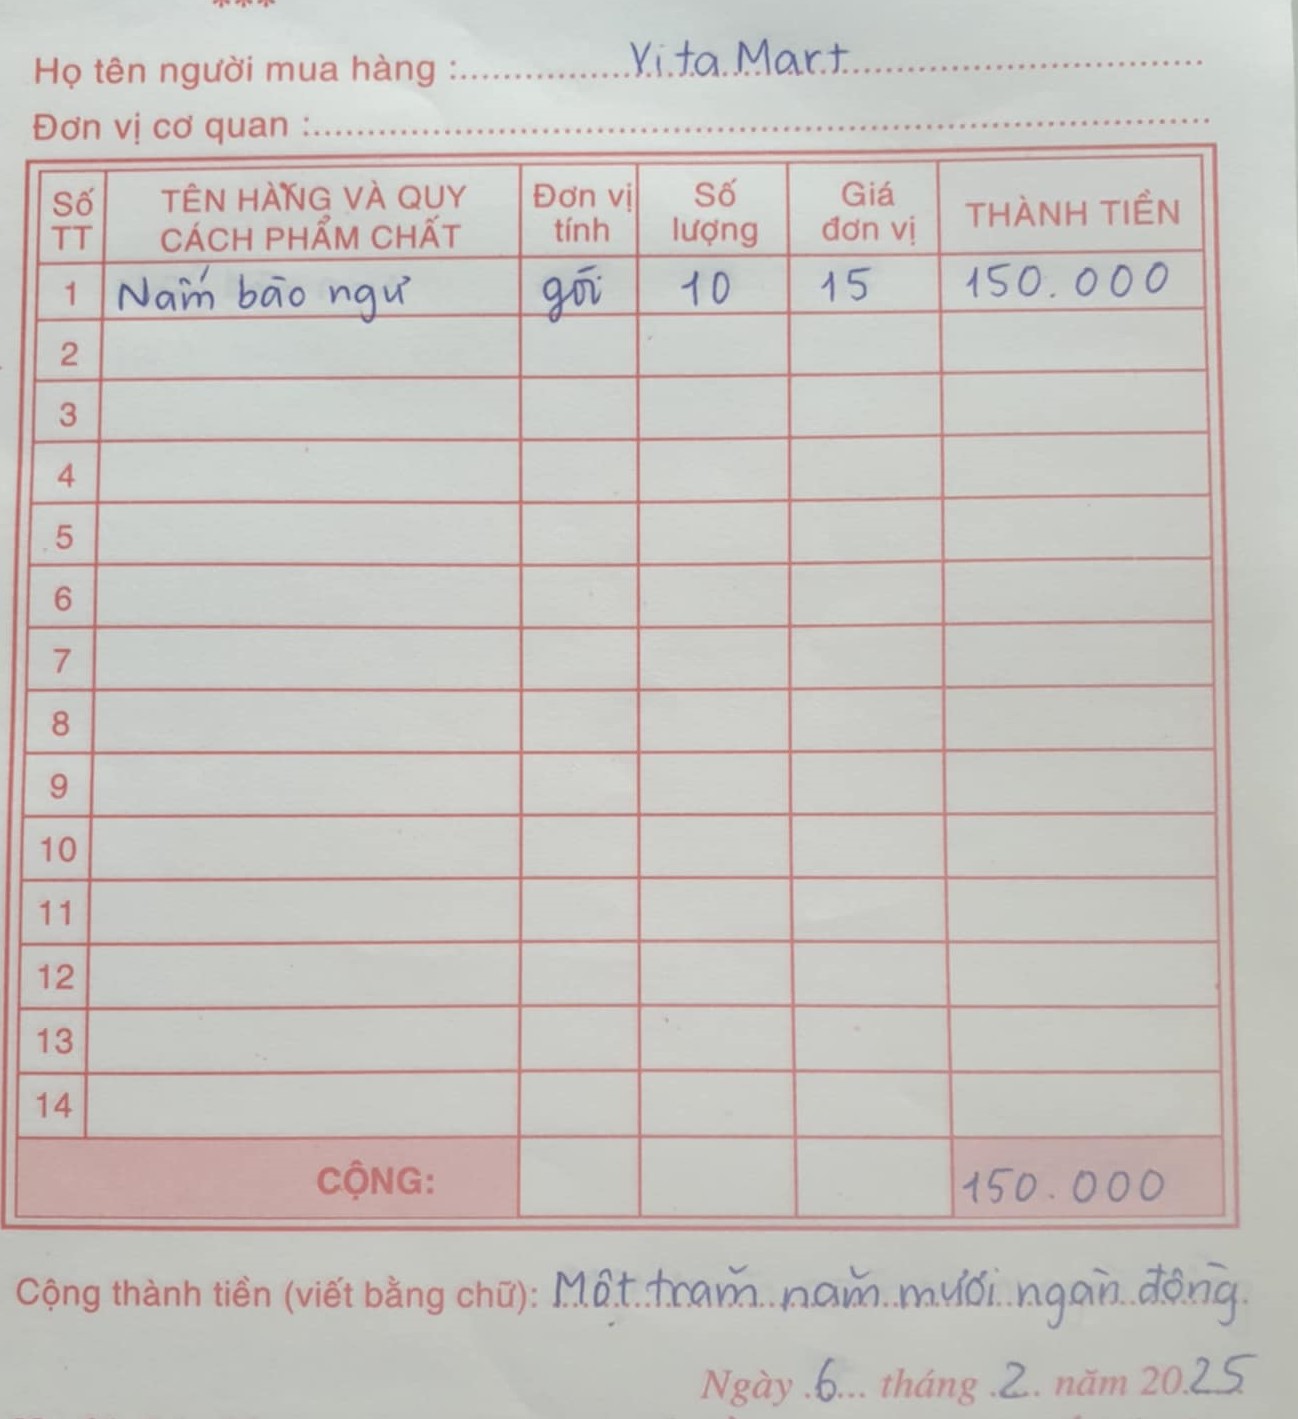 ***
Họ tên người mua hàng : Vita Mart
Đơn vị cơ quan :
Số TT TÊN HÀNG VÀ QUY CÁCH PHẨM CHẤT Đơn vị tính Số lượng Giá đơn vị THÀNH TIỀN
1 Nấm bào ngư gói 10 15 150.000
2
3
4
5
6
7
8
9
10
11
12
13
14
CỘNG: 150.000
Cộng thành tiền (viết bằng chữ): Một trăm năm mươi ngàn đồng.
Ngày 6 tháng 2 năm 2025